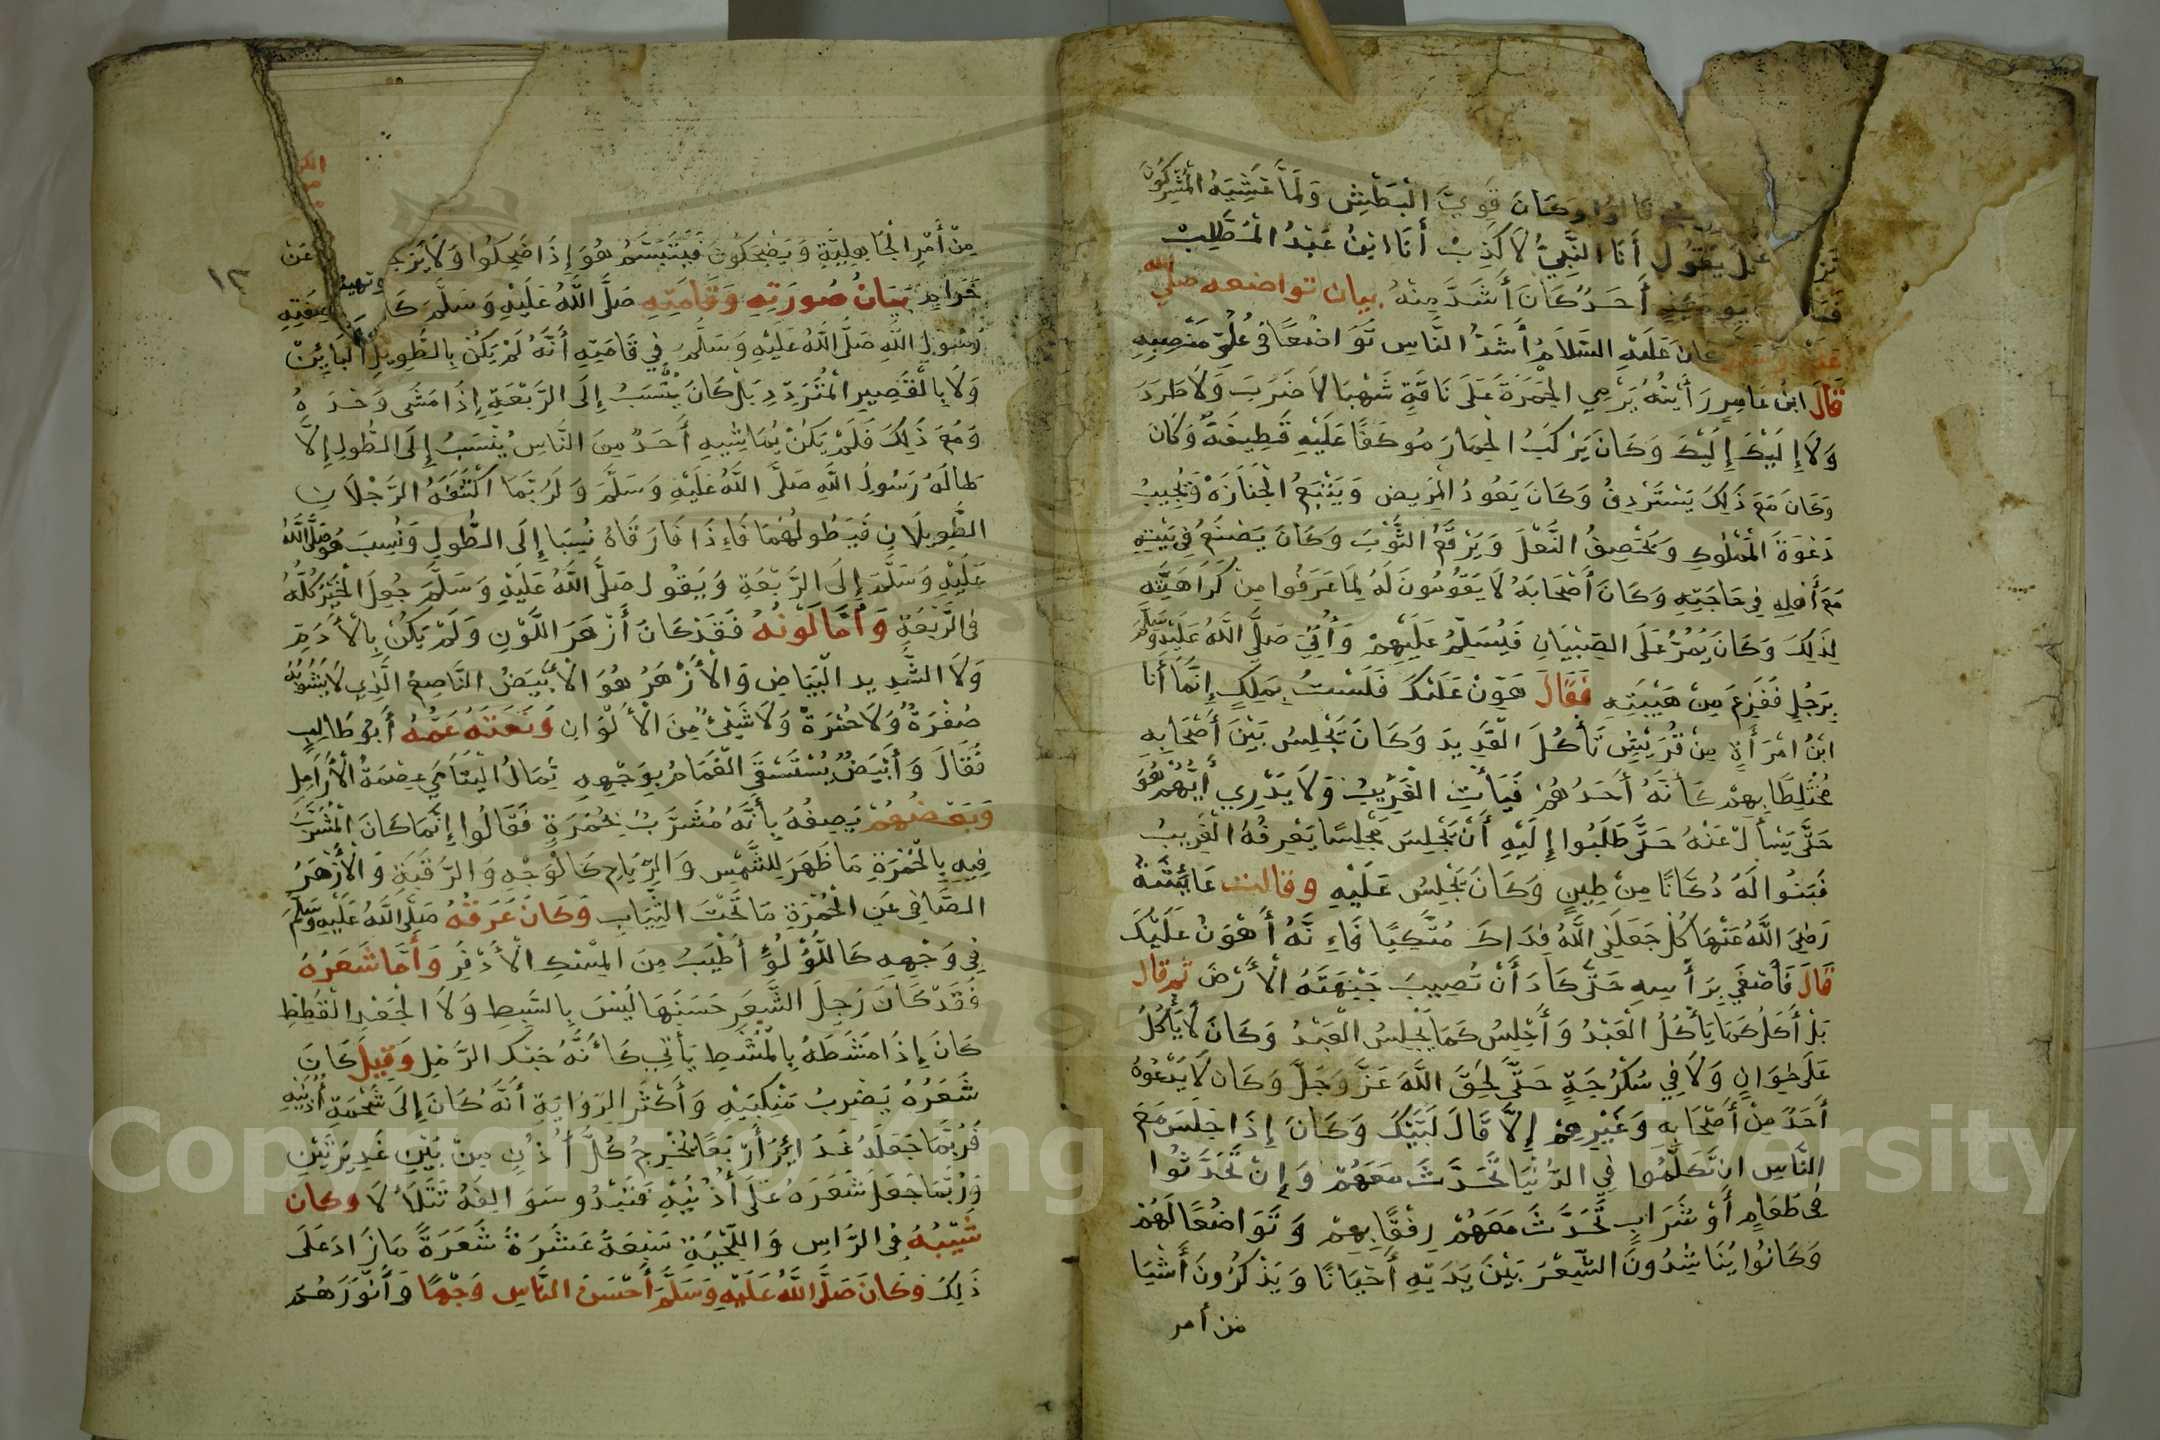 قالوا وكان قوي البطش ولما غشيه المشركون
يقول أنا النبي لا كذب أنا ابن عبد المطلب
أحد كان أشد منه بيان تواضعه صلى الله
كان عليه السلام أشد الناس تواضعا في علو منصبه
قال ابن عامر رأيته يرمي الجمرة على ناقة شهبا لا ضرب ولا طرد
ولا إليك إليك وكان يركب الحمار موكفا عليه قطيفة وكان
وكان مع ذلك يستردف وكان يعود المريض ويتبع الجنازة ويجيب
دعوة المملوك ويخصف النعل ويرقع الثوب وكان يصنع في بيته
مع أهله في حاجته وكان أصحابه لا يقومون له لما عرفوا من كراهيته
لذلك وكان يمر على الصبيان فيسلم عليهم وأتي صلى الله عليه وسلم
برجل ففزع من هيبته فقال هون عليك فلست بملك إنما أنا
ابن امرأة من قريش تأكل القديد وكان يجلس بين أصحابه
مختلطا بهم كأنه أحدهم فيأت الغريب ولا يدري أيهم هو
حتى يسأل عنه حتى طلبوا إليه أن يجلس مجلسا يعرفه الغريب
فبنوا له دكانا من طين وكان يجلس عليه وقالت عائشة
رضي الله عنها كل جعلني الله فداك متكيا فإنه أهون عليك
قال فأصغى برأسه حتى كاد أن تصيب جبهته الأرض ثم قال
بل أكل كما يأكل العبد وأجلس كما يجلس العبد وكان لا يأكل
على خوان ولا في سكرجة حتى لحق الله عز وجل وكان لا يدعوه
أحد من أصحابه وغيرهم إلا قال لبيك وكان إذا جلس مع
الناس ان تكلموا في الدنيا تحدث معهم وإن تحدثوا
في طعام أو شراب تحدث معهم رفقا بهم وتواضعا لهم
وكانوا يناشدون الشعر بين يديه أحيانا ويذكرون أشيا
من أمر
١٣
من أمر الجاهلية ويضحكون فيتبسم هو إذا ضحكوا ولا يزجر عن
حرام بيان صورته وقامته صلى الله عليه وسلم صفته
رسول الله صلى الله عليه وسلم في قامته أنه لم يكن بالطويل البائن
ولا بالقصير المتردد بل كان ينسب إلى الربعة إذا مشى وحده
ومع ذلك فلم يكن يماشيه أحد من الناس ينسب إلى الطول إلا
طاله رسول الله صلى الله عليه وسلم ولربما اكتنفه الرجلان
الطويلان فيطولهما فإذا فارقاه نسبا إلى الطول ونسب هو صلى الله
عليه وسلم إلى الربعة ويقول صلى الله عليه وسلم جعل الخير كله
في الربعة وأما لونه فقد كان أزهر اللون ولم يكن بالأدم
ولا الشديد البياض والأزهر هو الأبيض الناصع الذي لا يشوبه
صفرة ولا حمرة ولا شيئ من الألوان ونعته عمه أبو طالب
فقال وأبيض يستسقى الغمام بوجهه ثمال اليتامي عصمة الأرامل
وبعضهم يصفه بأنه مشرب بحمرة فقالوا إنما كان المشرب
فيه بالحمرة ما ظهر للشمس والرياح كالوجه والرقبة والأزهر
الصافي عن الحمرة ما تحت الثياب وكان عرقه صلى الله عليه وسلم
في وجهه كاللؤلؤ أطيب من المسك الأذفر وأما شعره
فقد كان رجل الشعر حسنها ليس بالسبط ولا الجعد القطط
كان إذا مشطه بالمشط يأتي كأنه حبك الرمل وقيل كان
شعره يضرب منكبيه وأكثر الرواية أنه كان إلى شحمة أذنيه
فربما جعله غدائر أربعا يخرج كل أذن من بين غديرتين
وربما جعل شعره على أذنيه فتبدو سوالفه تتلألأ وكان
شيبه في الراس واللحية سبعة عشرة شعرة ما زاد على
ذلك وكان صلى الله عليه وسلم أحسن الناس وجها وأنورهم
Copyright © King Saud University